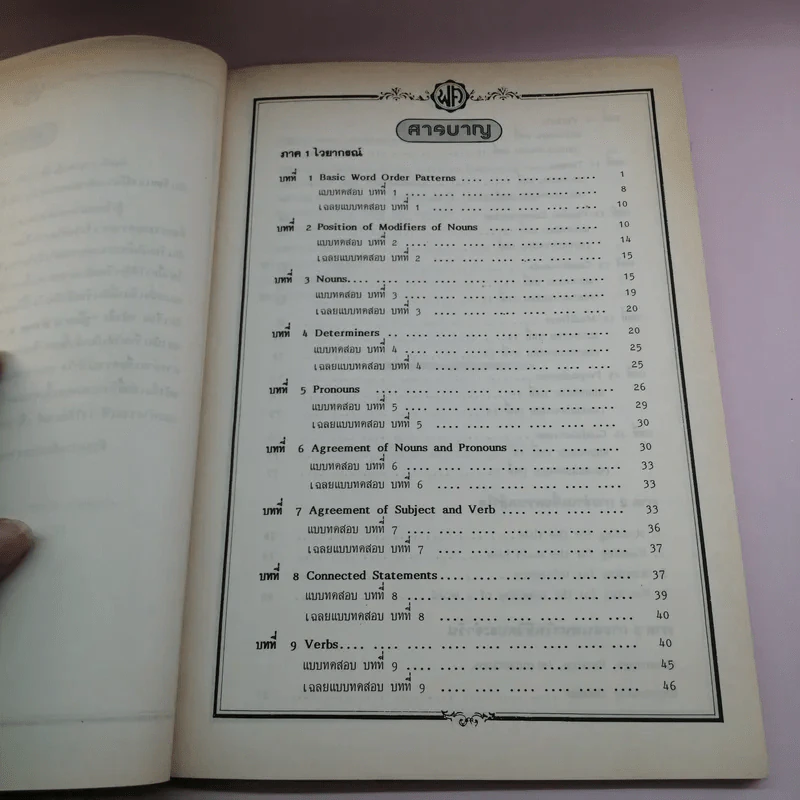 ฟค
สารบาญ
ภาค 1 ไวยากรณ์
บทที่ 1 Basic Word Order Patterns .... .... .... .... .... 1
แบบทดสอบ บทที่ 1 .... .... .... .... .... .... 8
เฉลยแบบทดสอบ บทที่ 1 .... .... .... .... .... 10
บทที่ 2 Position of Modifiers of Nouns .... .... .... .... 10
แบบทดสอบ บทที่ 2 .... .... .... .... .... .... 14
เฉลยแบบทดสอบ บทที่ 2 .... .... .... .... .... 15
บทที่ 3 Nouns.... .... .... .... .... .... .... .... 15
แบบทดสอบ บทที่ 3 .... .... .... .... .... .... 19
เฉลยแบบทดสอบ บทที่ 3 .... .... .... .... .... 20
บทที่ 4 Determiners .. .... .... .... .... .... .... 20
แบบทดสอบ บทที่ 4 .... .... .... .... .... .... 25
เฉลยแบบทดสอบ บทที่ 4 .... .... .... .... .... 25
บทที่ 5 Pronouns .... .... .... .... .... .... .... 26
แบบทดสอบ บทที่ 5 .... .... .... .... .... .... 29
เฉลยแบบทดสอบ บทที่ 5 .... .... .... .... .... 30
บทที่ 6 Agreement of Nouns and Pronouns .. .... .... .... 30
แบบทดสอบ บทที่ 6 .... .... .... .... .... .... 33
เฉลยแบบทดสอบ บทที่ 6 .... .... .... .... .... 33
บทที่ 7 Agreement of Subject and Verb .... .... .... .... 33
แบบทดสอบ บทที่ 7 .... .... .... .... .... .... 36
เฉลยแบบทดสอบ บทที่ 7 .... .... .... .... .... 37
บทที่ 8 Connected Statements.... .... .... .... .... .... 37
แบบทดสอบ บทที่ 8 .... .... .... .... .... .... 39
เฉลยแบบทดสอบ บทที่ 8 .... .... .... .... .... 40
บทที่ 9 Verbs.... .... .... .... .... .... .... .... 40
แบบทดสอบ บทที่ 9 .... .... .... .... .... .... 45
เฉลยแบบทดสอบ บทที่ 9 .... .... .... .... .... 46